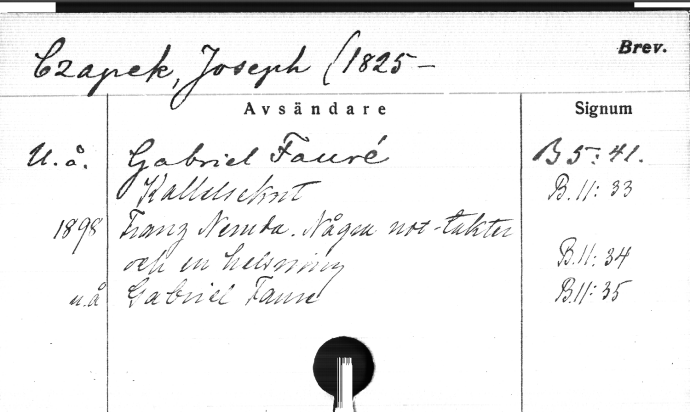 Brev.
Czapek, Joseph (1825-
Avsändare Signum
U.å. Gabriel Fauré B 5:41.
Kallelsekort B.11:33
1898 Franz Neruda. Några not-takter
och en helsning B.11:34
u.å Gabriel Faure B.11:35